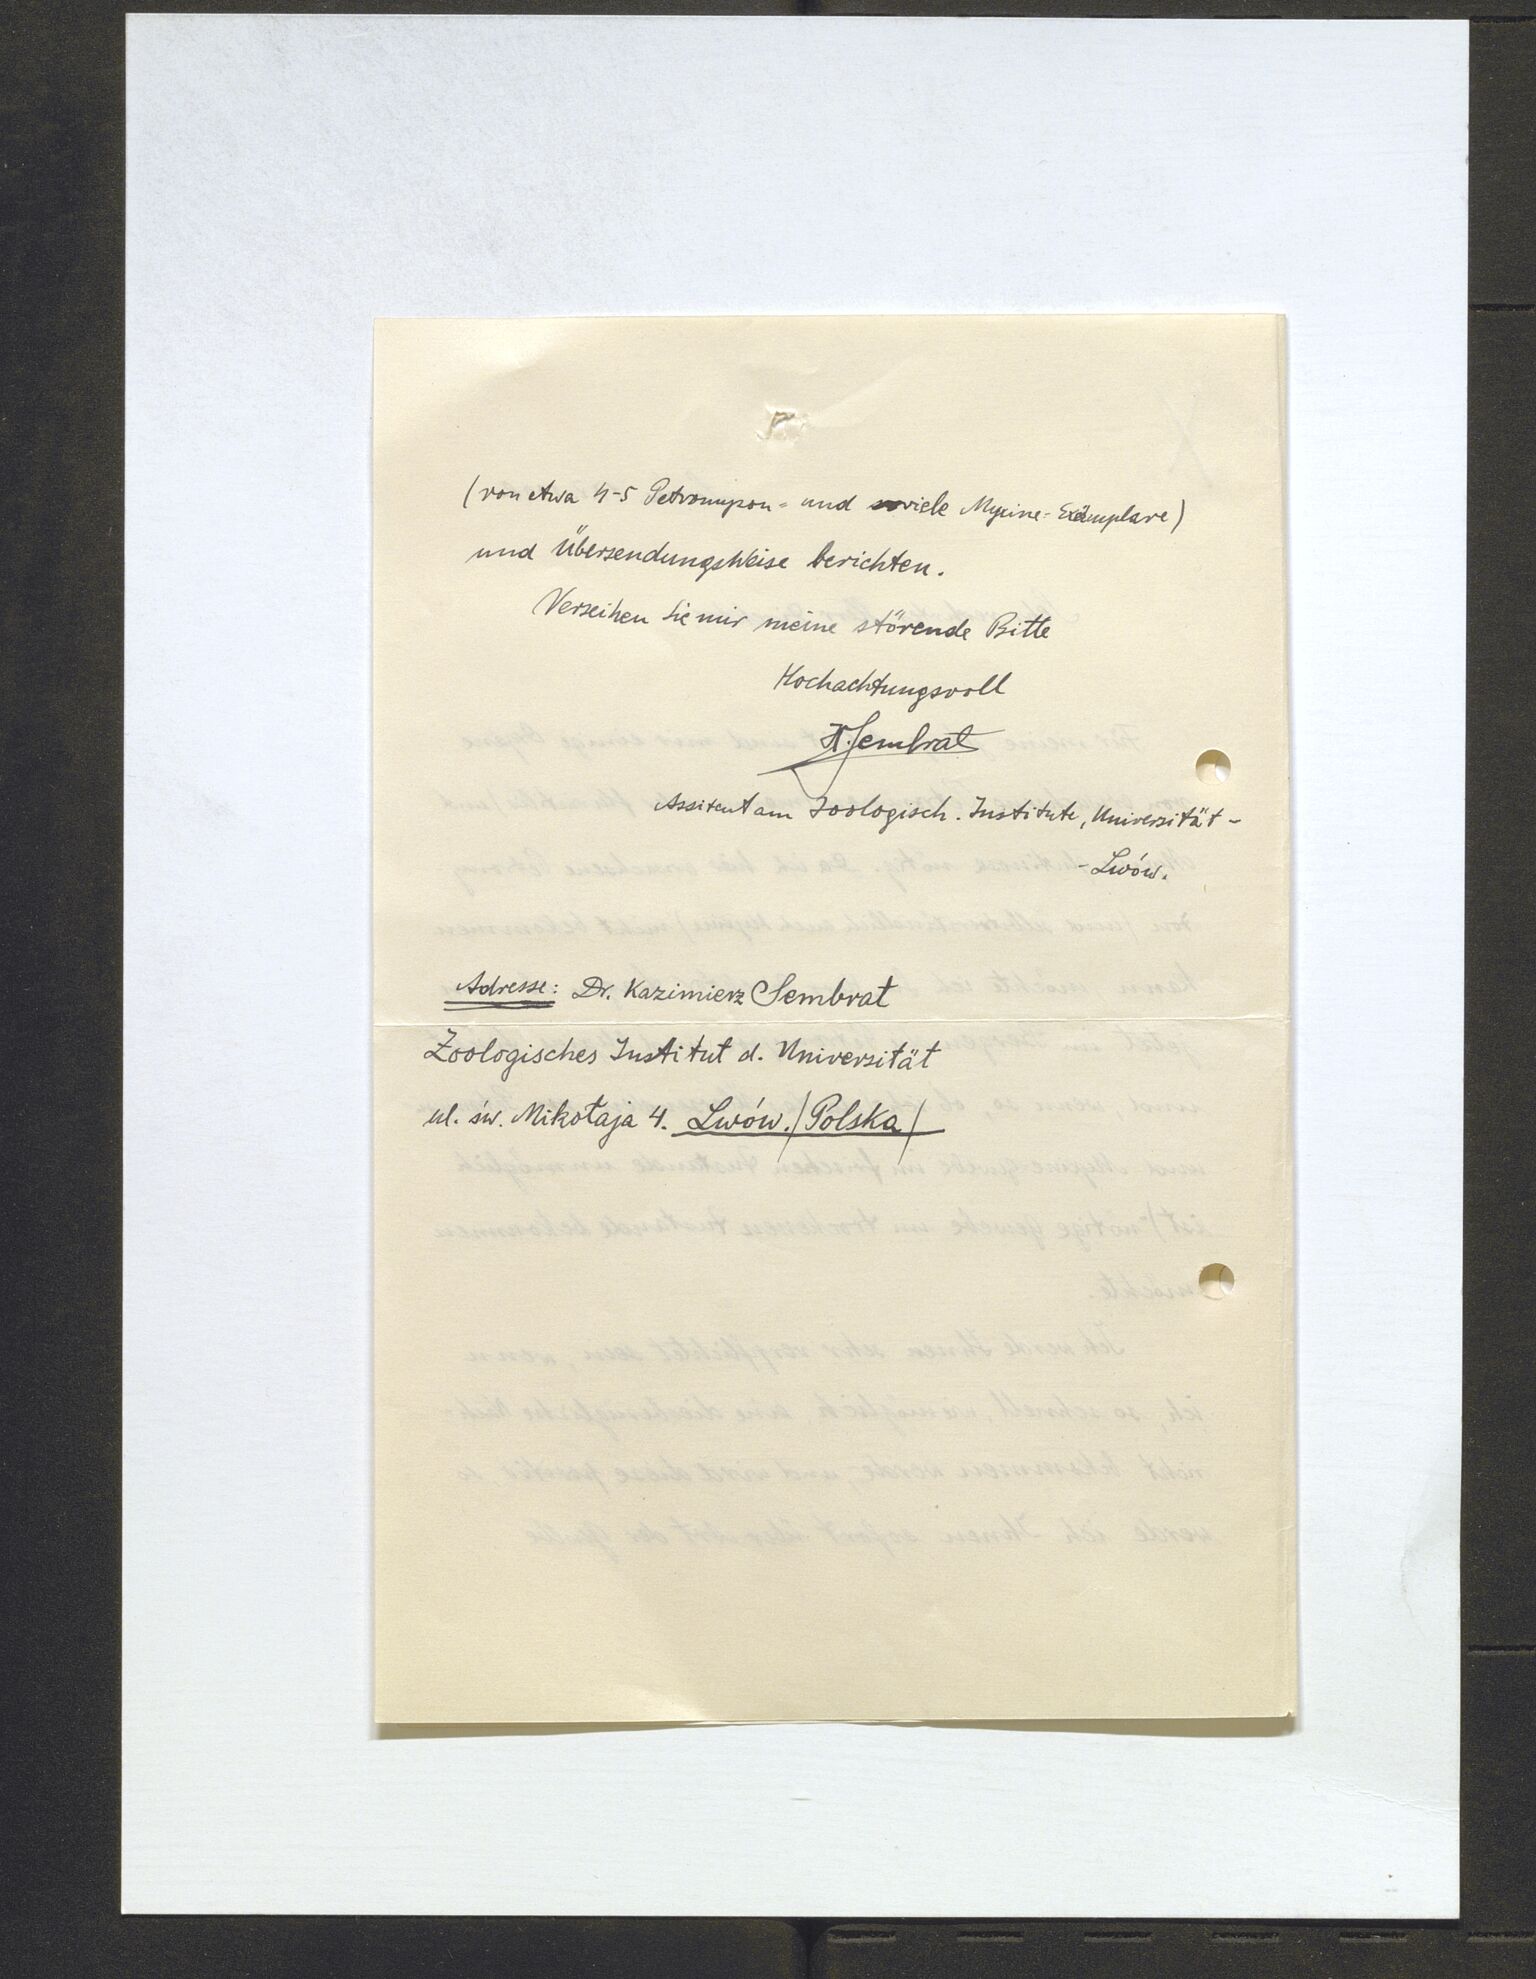 (von etwa 4-5 Petromyzon- und soviele Myxine-Exemplare)
und Übersendungsweise berichten.
Verzeihen Sie mir meine störende Bitte
Hochachtungsvoll
K. Sembrat
Assitent am Zoologisch. Institute, Universität-
-Lwów.
Adresse: Dr. Kazimierz Sembrat
Zoologisches Institut d. Universität
ul. św. Mikołaja 4. Lwów. /Polska/